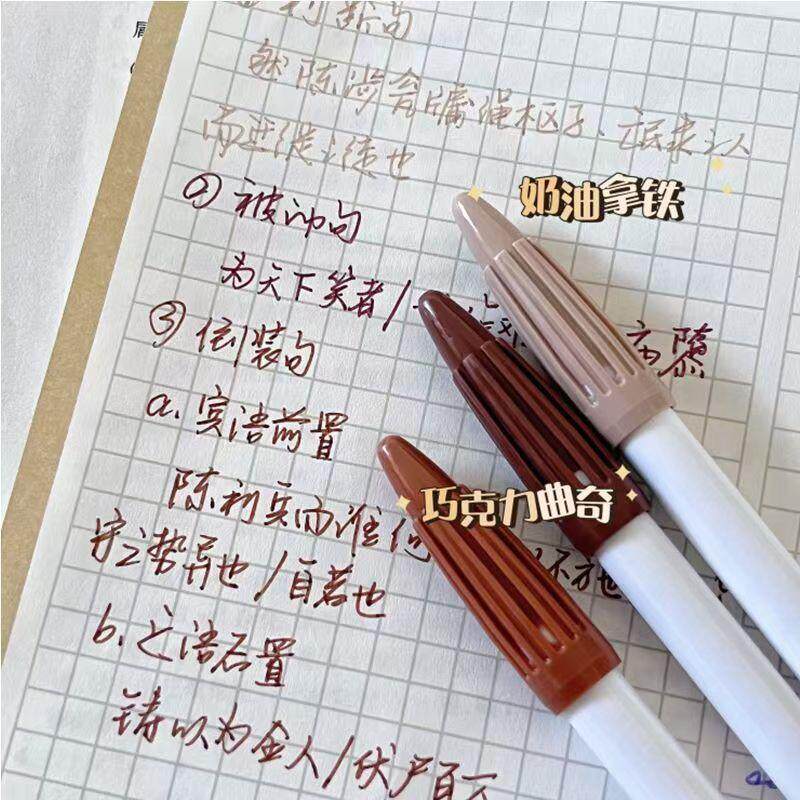 判断句
然陈涉瓮牖绳枢之子、氓隶之人
而迁徙之徒也
② 被动句
为天下笑者/
③ 倒装句
a. 宾语前置
陈利兵而谁何
守之势异也/自若也
b. 定语后置
铸以为金人/伏尸百万
奶油拿铁
巧克力曲奇